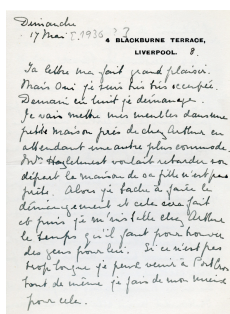 Dimanche
17 Mai [1936 ?]
4 BLACKBURNE TERRACE,
LIVERPOOL. 8.
Ta lettre m'a fait grand plaisir.
Mais oui je suis très très occupée.
Demain en huit je déménage.
Je vais mettre mes meubles dans une
petite maison près de chez Arthur en
attendant une autre plus commode.
Mrs voulait retarder son
départ la maison de sa fille n'est pas
prête. Alors je tache à faire le
déménagement et cela sera fait
et puis je m'installe chez Arthur
le temps qu'il faut pour trouver
des gens pour lui. Si ce n'est pas
trop longue je peux venir à Port Cros
tout de même je fais de mon mieux
pour cela.